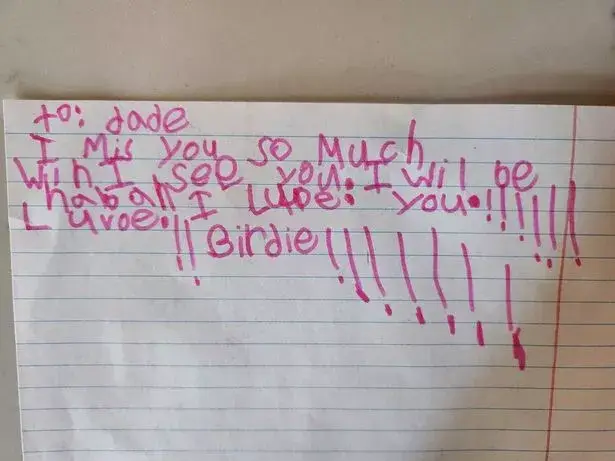 to: dade
I Mis you so Much
Win I see you. I will be
habah I Luve. you.!!!!!!
Luroe.!!Birdie!!!!!!!!